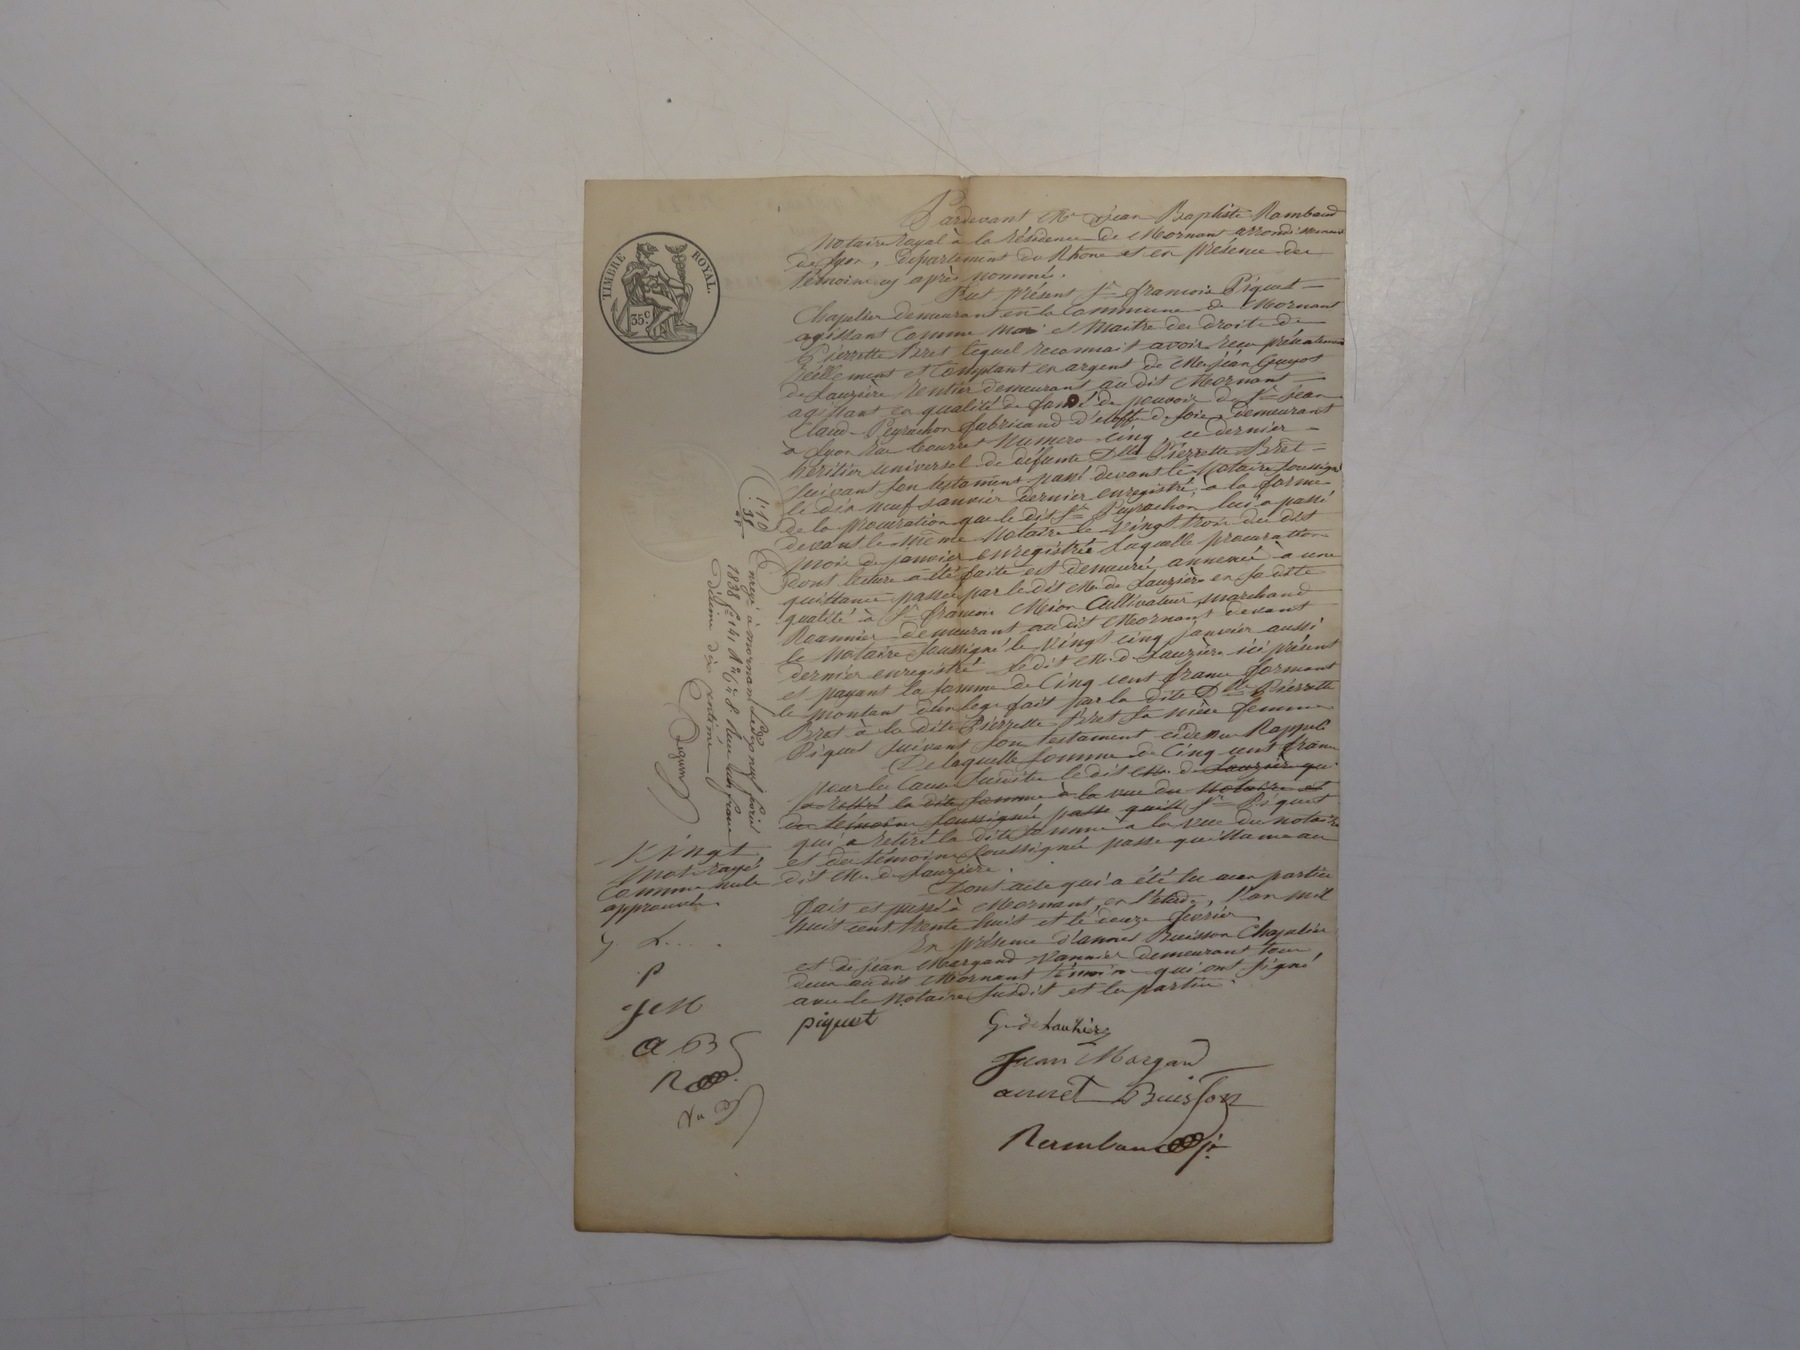 TIMBRE ROYAL.
35.c
Pardevant Me Jean Baptiste Rambaud
Notaire royal à la résidence de Mornant arrondissement
de Lyon, département du Rhône et en présence des
témoins cy après nommés.
Fut présent Sr françois Piquet
Chapelier demeurant en la Commune de Mornant
agissant Comme mari et Maitre des droits de
Pierrette Bret lequel reconnait avoir reçu présentement
réellement et Comptant en argent de Mr jean Guyot
de Lauzière rentier demeurant au dit Mornant
agissant en qualité de fondé de pouvoir de Sr jean
Claude Peyrachon fabricand d'etoffe de soie demeurant
à Lyon rue Numero cinq, ce dernier
héritier universel de défunte Dlle Pierrette Bret
suivant son testament passé devant le Notaire soussigné
le dix neuf janvier dernier enregistré, à la forme
de la procuration que le dit Sr Peyrachon lui a passé
devant le même Notaire le Vingt trois du dit
mois de janvier enregistrée laquelle procuration
dont lecture a été faite est demeurée annexée à une
quittance passée par le dit Mr de Lauzière en sa dite
qualité à Sr francois Mion Cultivateur, marchand
demeurant au dit Mornant devant
le Notaire soussigné le vingt cinq janvier aussi
dernier enregistré le dit Mr de Lauzière ici présent
et payant la somme de Cinq cent francs formant
le montant d'un legs fait par la dite Dlle Pierrette
Bret à la dite Pierrette Bret sa nièce femme
Piquet suivant son testament ci dessus Rappelé
De laquelle somme de Cinq cent francs
pour les causes susdites le dit Mr de Lauzière qui
a retiré la dite somme à la vue du Notaire et
des témoins soussignés passe quitt Sr Piquet
qui a retiré la dite somme à la vue du notaire
et des témoins soussignés passe quittance au
dit Mr de Lauzière.
Dont acte qui a été lu aux parties
fait et passé à Mornant, en l'étude, l'an mil
huit cent trente huit et le douze fevrier
En présence d'annet Buisson Chapelier
et de jean Margand Vannier demeurant tous
deux au dit Mornant témoins qui ont signé
avec le Notaire susdit et les parties.
piquet
G. de Lauzière
Jean Morgand
annet Buisson
Rambaud jr.
1. 10
Enregé à mornant le dix neuf fevrier
1838 fo 141 Ro Reçu un franc
Décime dix centimes
Vingt
mots rayés
Comme nuls
approuvés
g. L.
P
J M
a B
R